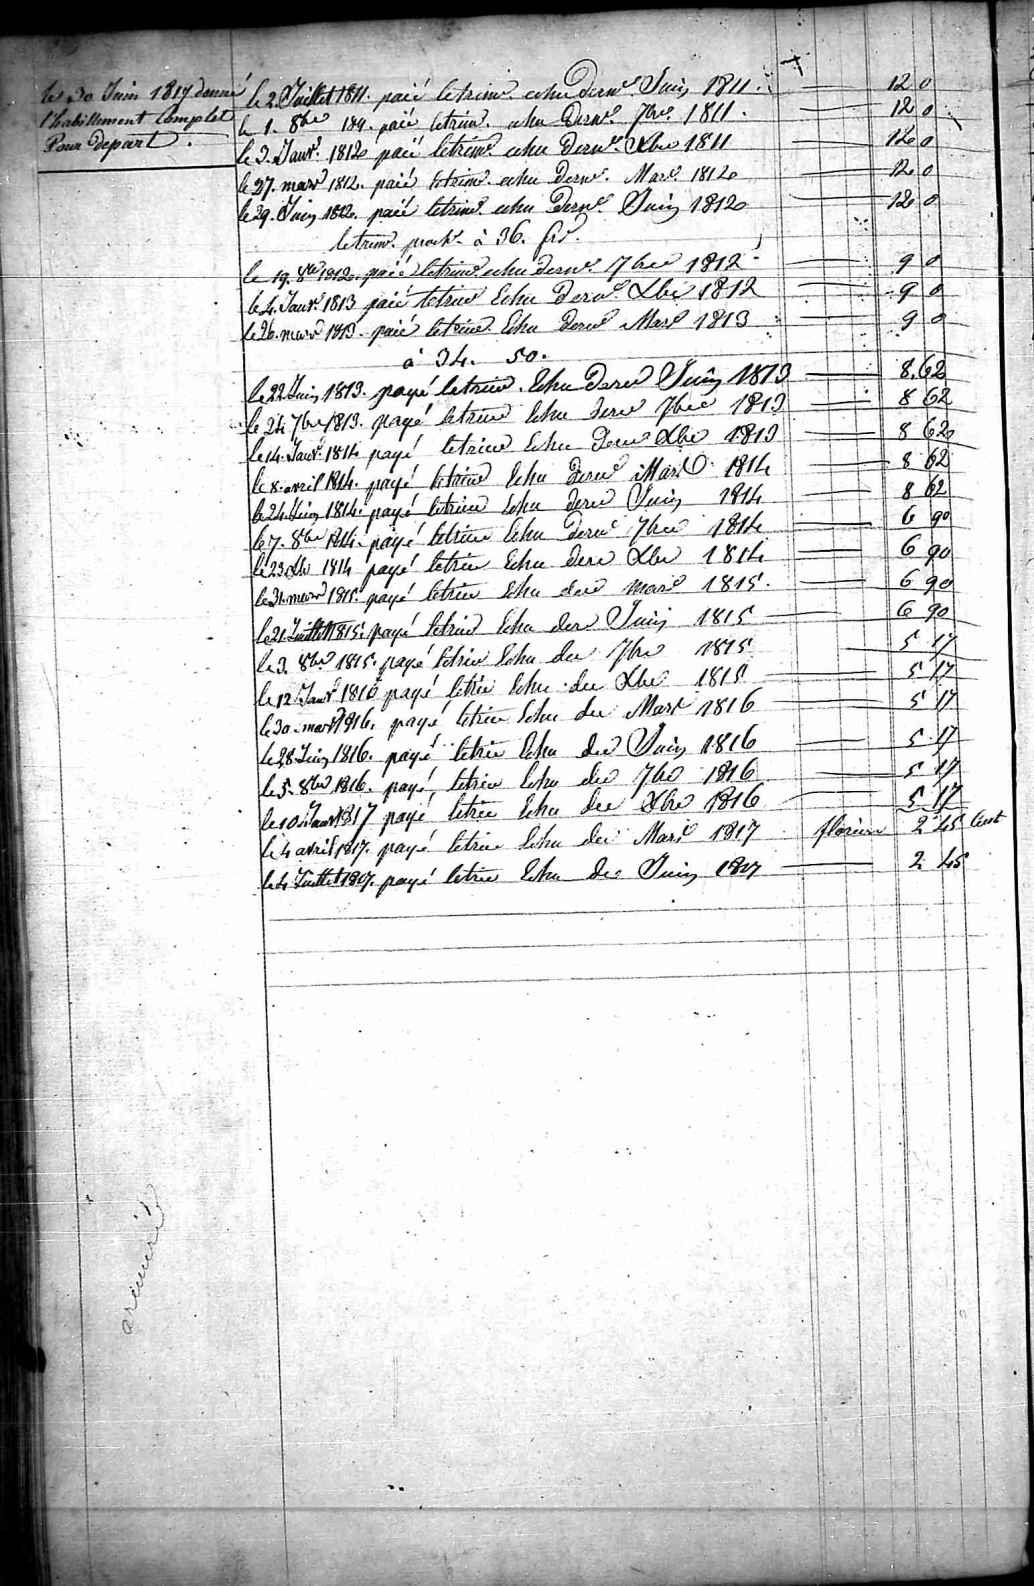 le 30 Juin 1817 donné
l'habillment Complet
Pour depart.
le 2. Juillet 1811. paié le trim. echu dern. Juin 1811. 12 0
le 1. 8bre 1811. paié le trim. echu dern. 7bre 1811. 12 0
le 3. Janv. 1812 paié le trim. echu dern. Xbre 1811 12 0
le 27. mars 1812. paié le trim. echu dern. Mars 1812 12 0
le 29. Juin 1812. paié le trim. echu dern. Juin 1812 12 0
le trim. proch. à 36. frs.
le 19. 8bre 1812. paié le trim. echu dern. 7bre 1812 9 0
le 4. Janv. 1813 paié le trim Echu dern. Xbre 1812 9 0
le 26. mars 1813. paié le trim. Echu dern Mars 1813 9 0
à 34. 50.
le 22 Juin 1813. payé le trim. Echu dern Juin 1813 8.62
le 24 7bre 1813. payé le trim Echu dern 7bre 1813 8 62
le 14. Janv. 1814 payé le trim Echu dern Xbre 1813 8 62
le 8. avril 1814. payé le trim Echu dern Mars 1814 8 62
le 24 Juin 1814. payé le trim Echu dern Juin 1814 8 62
le 7. 8bre 1814. payé le trim Echu dern 7bre 1814 6 90
le 23 Xbre 1814 payé le trim Echu der Xbre 1814 6 90
le 31. mars 1815. payé le trim Echu der mars 1815. 6 90
le 21 Juillet 1815. payé le trim Echu der Juin 1815 6 90
le 3. 8bre 1815. payé le trim Echu der 7bre 1815 5 17
le 12 Janv 1816 payé le trim Echu der Xbre 1815 5 17
le 30 mars 1816. payé le trim Echu der Mars 1816 5 17
le 28 Juin 1816. payé le trim Echu der Juin 1816 5 17
le 5. 8bre 1816. payé le trim Echu der 7bre 1816 5 17
le 10 Janv 1817 payé le trim Echu der Xbre 1816 5 17
le 4 avril 1817. payé le trim Echu der Mars 1817 florins 2 45 Cent
le 4 Juillet 1817. payé le trim Echu de Juin 1817 2 45